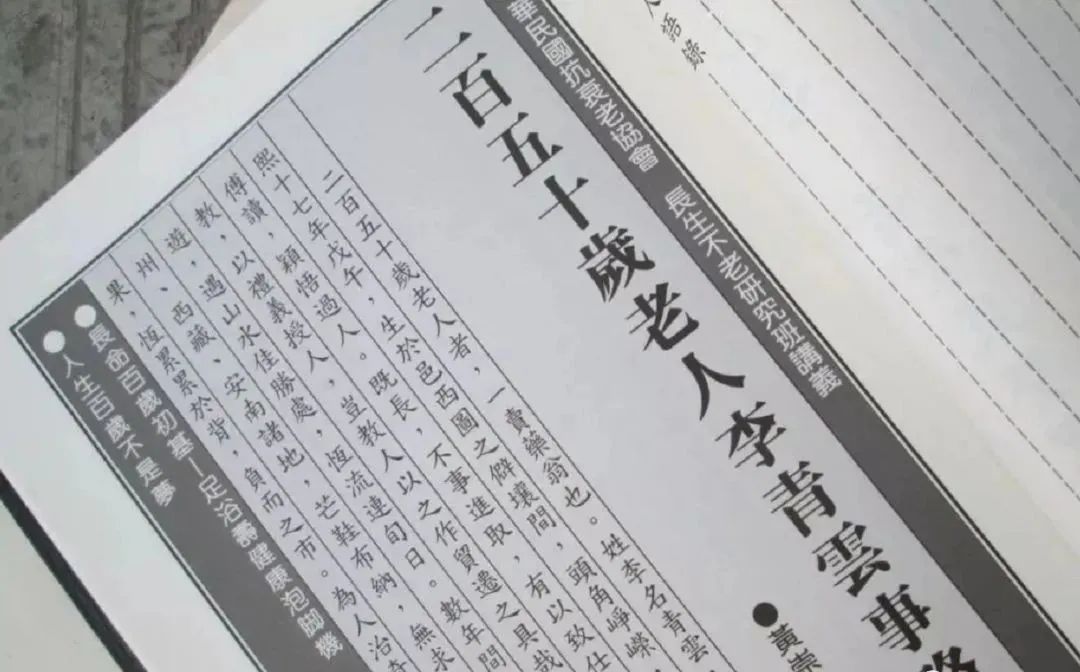 人語錄
華民國抗衰老協會 長生不老研究班講義
二百五十歲老人李青雲事略
●黃崇
二百五十歲老人者，一賣藥翁也。姓李名青雲
熙十七年戊午，生於邑西圖之僻壤間，頭角崢嶸
傅讀，穎悟過人。既長，不事進取，有以致仕
教，以禮義授人，豈教人以之作貿遷之具哉
遊，遇山水佳勝處，恆流連旬日。數年間
州、西藏、安南諸地，芒鞋布納，無求
果，恆累累於背，負而之市。為人治
●長命百歲初基—足浴壽健康泡腳機
●人生百歲不是夢